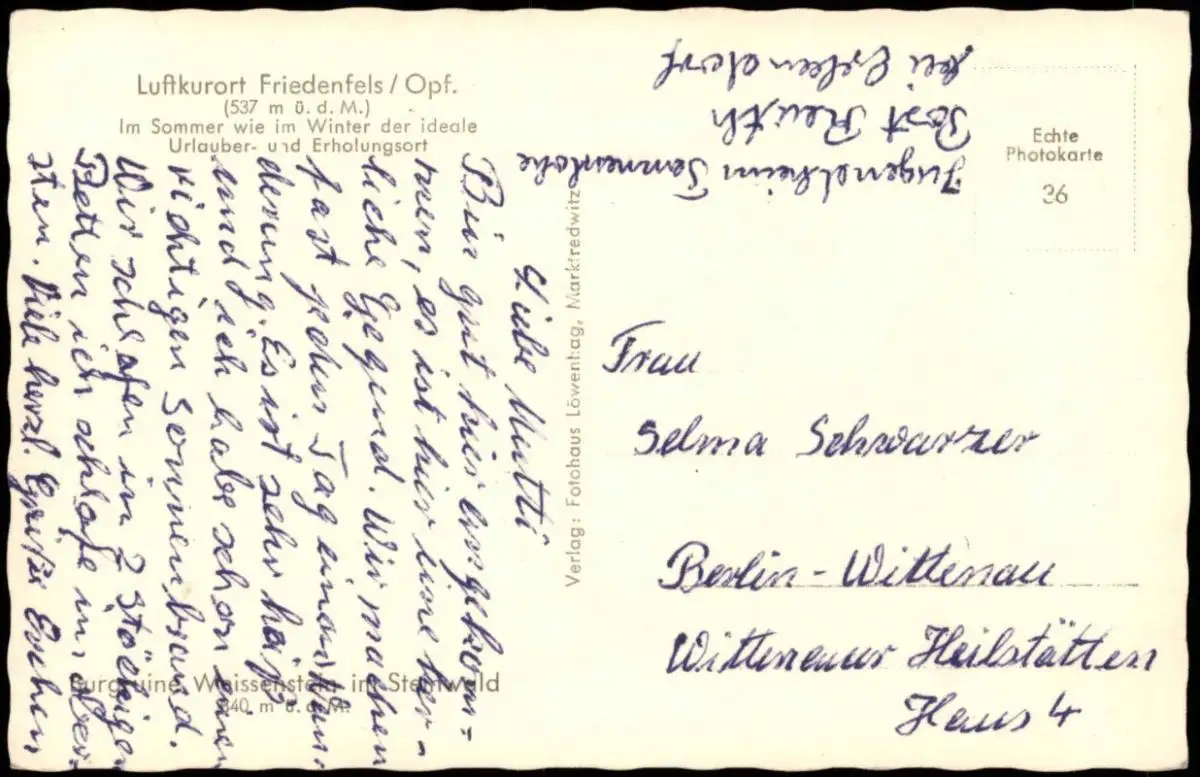 Luftkurort Friedenfels / Opf.
(537 m ü. d. M.)
Im Sommer wie im Winter der ideale
Urlauber- und Erholungsort
Liebe Mutti
Bin gut hier angekom-
men, es ist hier eine herr-
liche Gegend. Wir machen
fast jeden Tag eine Wan-
derung. Es ist sehr heiß
und ich habe schon einen
richtigen Sonnenbrand.
Wir schlafen in 2 stöckigen
Betten ich schlafe im ober-
sten. Viele herzl. Grüße Evchen
Burgruine Weissenstein im Steinwald
840 m ü. d. M.
Verlag: Fotohaus Löwenhag, Marktredwitz
Jugendheim Tannenlohe
Post Reuth
bei Erbendorf
Echte
Photokarte
36
Frau
Selma Schwarzer
Berlin - Wittenau
Wittenauer Heilstätten
Haus 4